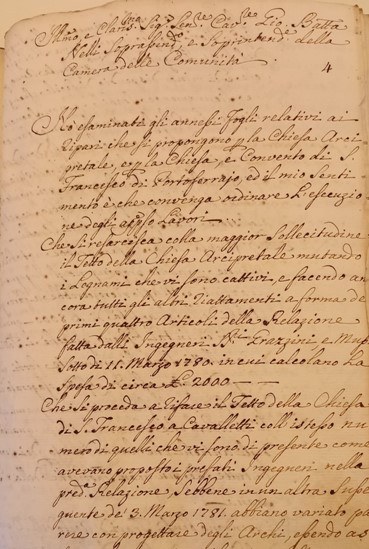 Illmo. e Clarmo. Sigr. Senre. Cavre. Gio. Batta.
Nelli Soprassindo. e Soprintende. della
Camera delle Comunità
4
Ho esaminati gli annessi fogli relativi ai
ripari che si propongono p la Chiesa Arci=
pretale, e p la Chiesa, e Convento di S.
Francesco di Portoferrajo, ed il mio Senti
mento è che convenga ordinare L'esecuzio
ne degli appso. Lavori
Che si resarcisca colla maggior Sollecitudine
il Tetto della Chiesa Arcipretale mutando
i Legnami che vi sono cattivi, e facendo an
cora tutti gli altri riattamenti a forma de
primi quattro Articoli della Relazione
fatta dalli Ingegneri Grazzini, e
sotto di 11. Marzo 1780. in cui calcolano La
Spesa di circa £ 2000
Che si proceda a rifare il Tetto della Chiesa
di S. Francesco a Cavalletti coll'istesso nu
mero di quelli che vi sono di presente come
avevano proposto i prefati Ingegneri nella
preda. Relazione, Sebbene in un altra susse
guente de 3. Marzo 1781. abbiano variato pa
rere con progettare degli Archi, essendo as